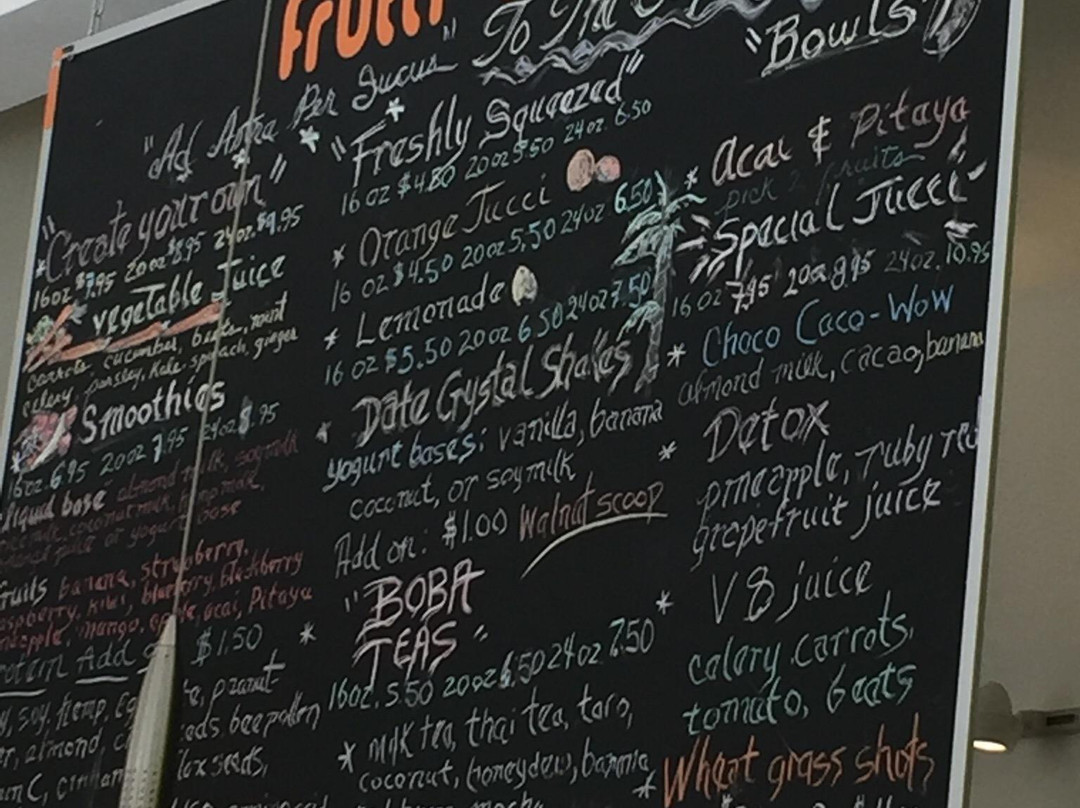 "Ad Astra Per Sucus"
"Create your own"
16oz $7.95 20oz $8.95 24oz $9.95
* vegetable Juice
carrots, cucumber, beets, mint
celery, parsley, kale, spinach, ginger
Smoothies
16oz 6.95 20oz 7.95 24oz 8.95
liquid base almond milk, soymilk
coconutmilk, hempmilk,
or yogurt base
fruits banana, strawberry,
raspberry, kiwi, blueberry, blackberry
pineapple, mango, apple, acai, Pitaya
Add $1.50
soy, hemp, peanut
almond, seeds beepollen
flaxseeds,
"Freshly Squeezed"
16 oz $4.80 20oz 5.50 24oz. 6.50
* Orange Jucci
16 oz $4.50 20oz 5.50 24oz 6.50
* Lemonade
16 oz $5.50 20oz 6.50 24oz 7.50
* Date Crystal Shakes
yogurt bases: vanilla, banana
coconut, or soymilk
Add on: $1.00 Walnut scoop
* "BOBA
TEAS"
16oz. 5.50 20oz 6.50 24oz 7.50
* milk tea, thai tea, taro,
coconut, honeydew, banana
mocha
To The
"Bowls"
* acai & Pitaya
pick 2 fruits
"Special Jucci"
16 oz 7.95 20oz. 8.95 24oz. 10.95
* Choco Caco-Wow
almond milk, cacao, banana
* Detox
pineapple, ruby red
grepefruit juice
* V8 juice
calary carrots,
tomato, beats
* Wheat grass shots